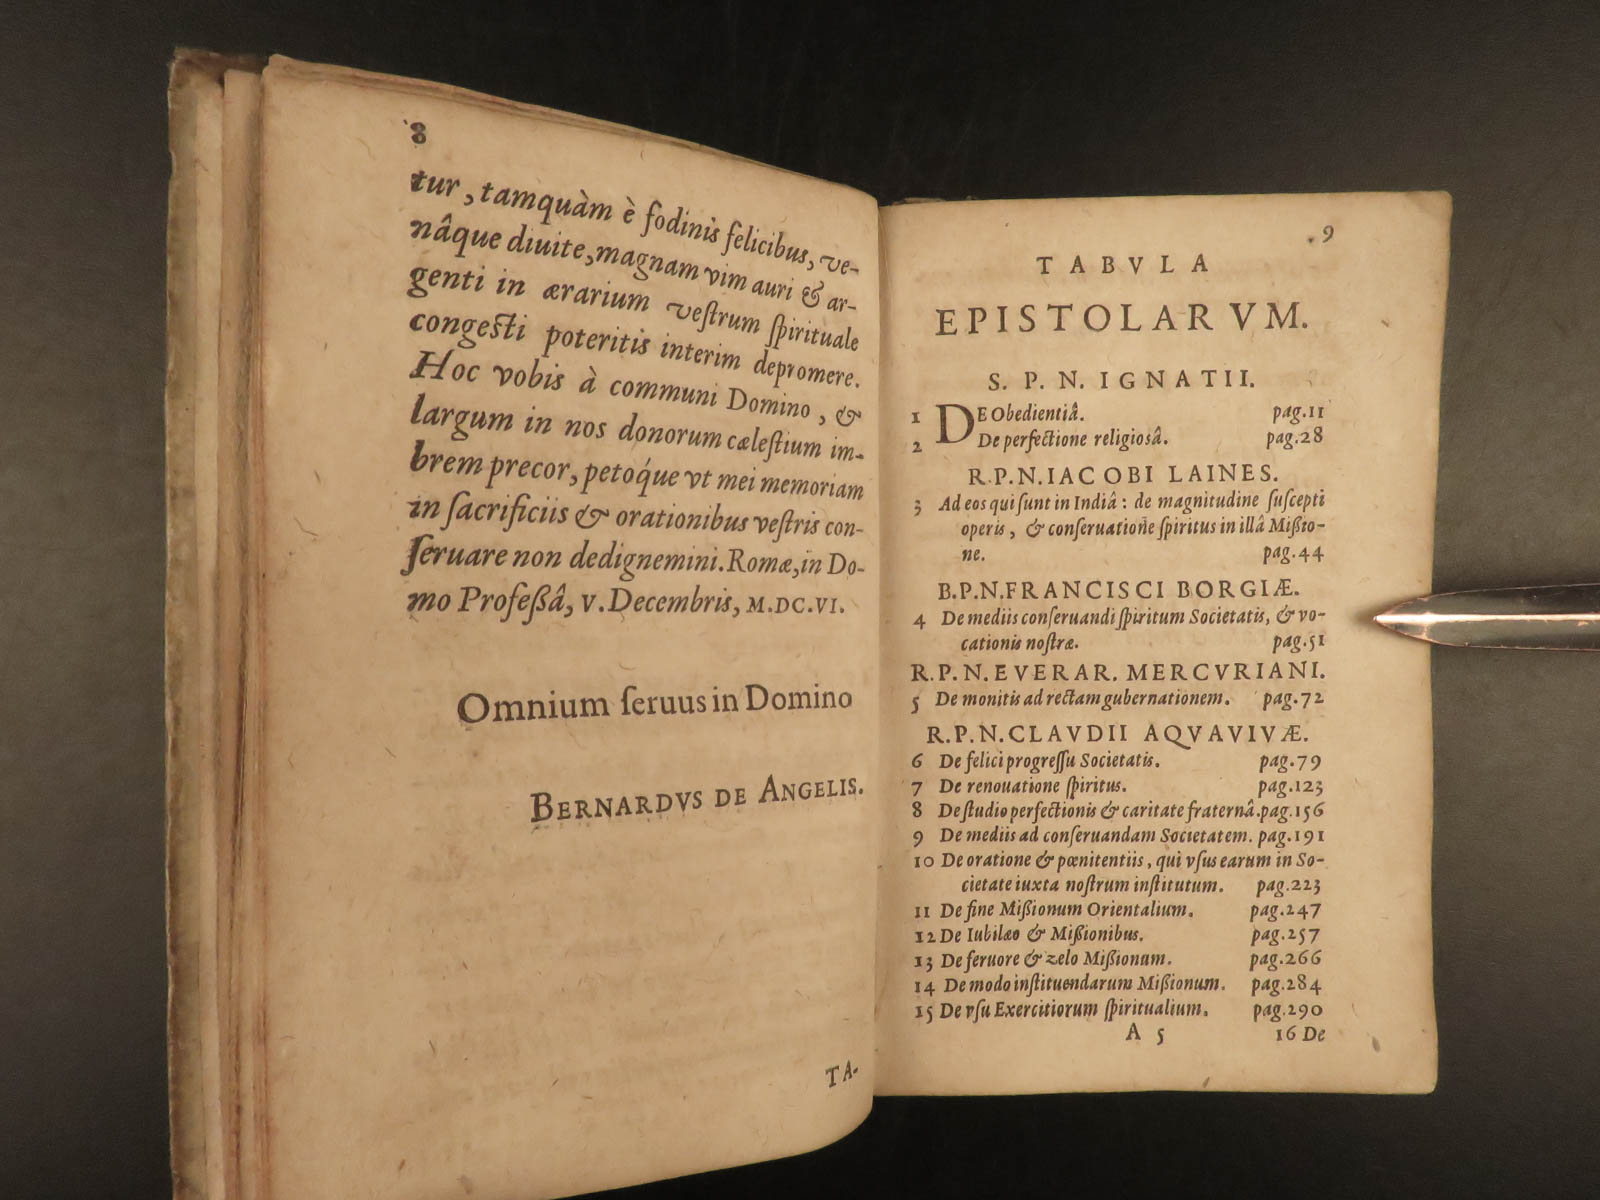 8
tur, tamquàm è fodinis felicibus, ve-
nâque diuite, magnam vim auri & ar-
genti in ærarium vestrum spirituale
congesti poteritis interim depromere.
Hoc vobis à communi Domino, &
largum in nos donorum cælestium im-
brem precor, petoq́ue vt mei memoriam
in sacrificiis & orationibus vestris con-
seruare non dedignemini. Romæ, in Do-
mo Professâ, V. Decembris, M.DC.VI.
Omnium seruus in Domino
BERNARDVS DE ANGELIS.
TA-
9
TABVLA
EPISTOLARVM.
S. P. N. IGNATII.
1 DE Obedientiâ. pag.11
2 De perfectione religiosâ. pag.28
R.P.N. IACOBI LAINES.
3 Ad eos qui sunt in Indiâ: de magnitudine suscepti
operis, & conseruatione spiritus in illâ Missio-
ne. pag.44
B.P.N. FRANCISCI BORGIÆ.
4 De mediis conseruandi spiritum Societatis, & vo-
cationis nostræ. pag.51
R.P.N. EVERAR. MERCVRIANI.
5 De monitis ad rectam gubernationem. pag.72
R.P.N. CLAVDII AQVAVIVÆ.
6 De felici progressu Societatis. pag.79
7 De renouatione spiritus. pag.123
8 De studio perfectionis & caritate fraternâ. pag.156
9 De mediis ad conseruandam Societatem. pag.191
10 De oratione & pœnitentiis, qui vsus earum in So-
cietate iuxta nostrum institutum. pag.223
11 De fine Missionum Orientalium. pag.247
12 De Iubilæo & Missionibus. pag.257
13 De feruore & zelo Missionum. pag.266
14 De modo instituendarum Missionum. pag.284
15 De vsu Exercitiorum spiritualium. pag.290
A 5 16 De